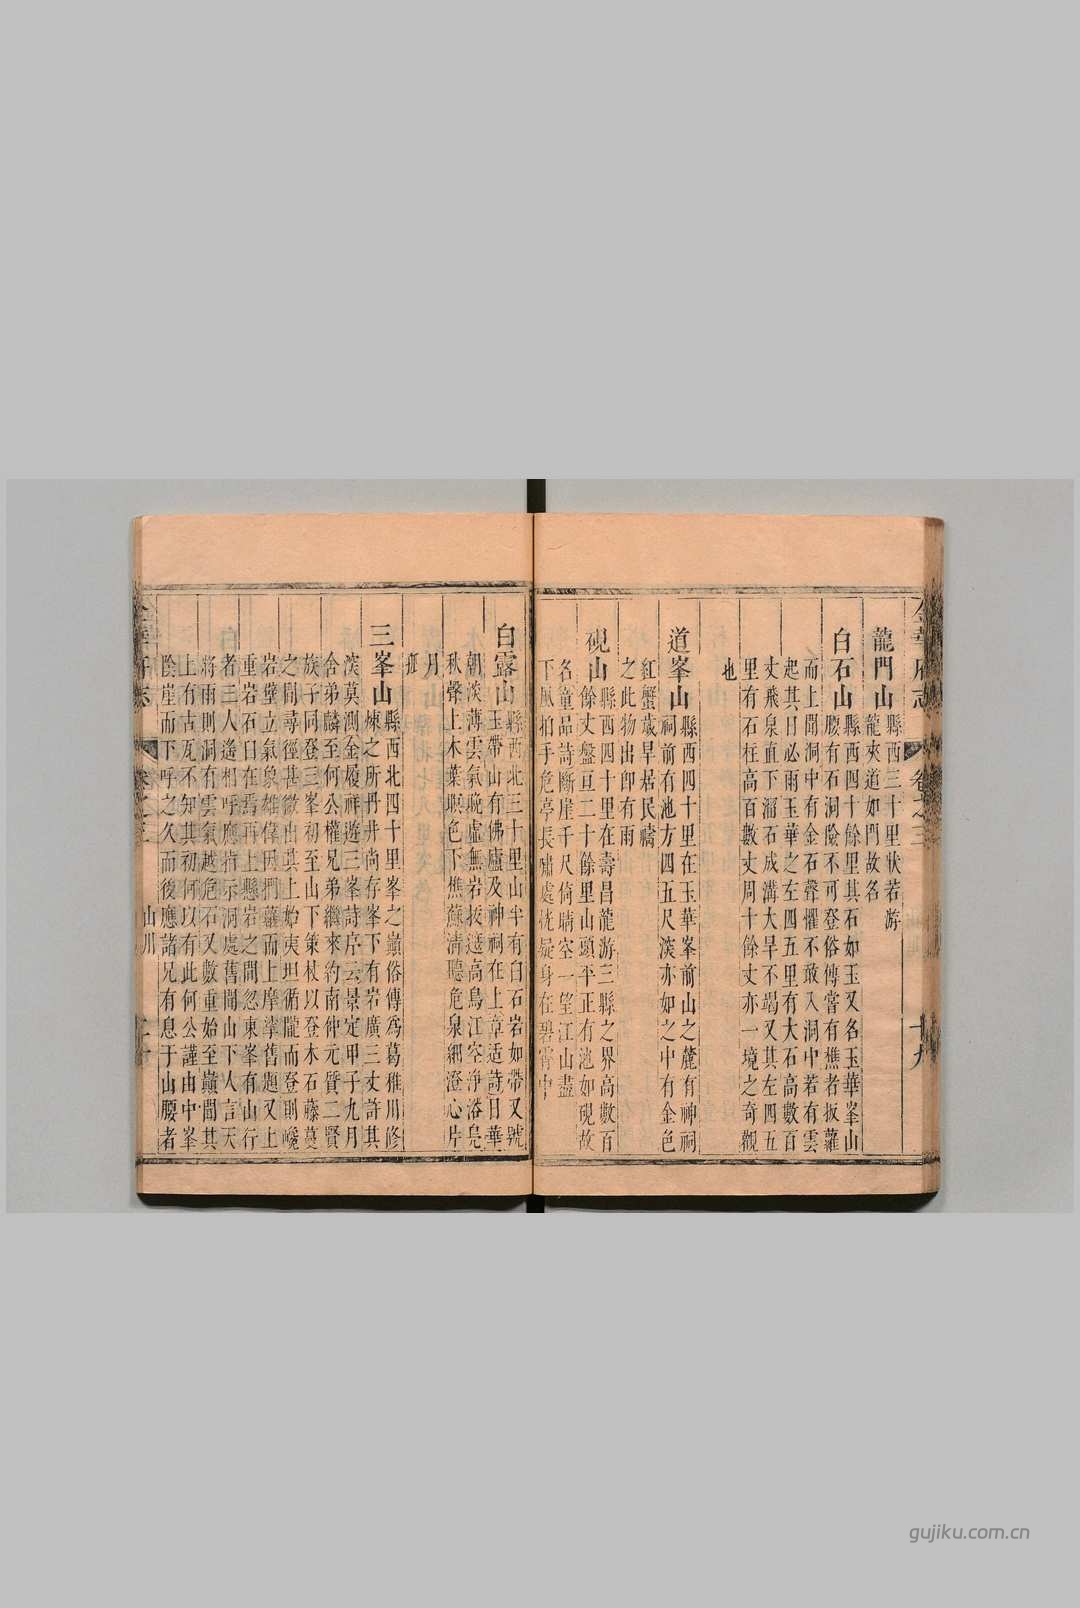 金華府志
卷之三
十九
龍門山
縣西三十里狀若游
龍夾道如門故名
白石山
縣西四十餘里其石如玉又名玉華峯山
腰有石洞險不可登俗傳嘗有樵者扳蘿
而上聞洞中有金石聲懼不敢入洞中若有雲
起其日必雨玉華之左四五里有大石高數百
丈飛泉直下溜石成溝大旱不竭又其左四五
里有石柱高百數丈周十餘丈亦一境之奇觀
也
道峯山
縣西四十里在玉華峯前山之麓有神祠
祠前有池方四五尺淡亦如之中有金色
紅蟹歲旱居民禱
之此物出即有雨
硯山
縣西四十里在壽昌龍游三縣之界高數百
餘丈盤亘二十餘里山頭平正有池如硯故
名童品詩斷崖千尺倚晴空一望江山盡
下風拍手危亭長嘯處恍疑身在碧霄中
白露山
縣西北三十里山半有白石岩如帶又號
玉帶山有佛廬及神祠在上章适詩日華
朝淡薄雲氣晚虛無岩扳遠高鳥江空浄浴鳧
秋聲上木葉暝色下樵蘇清聽危泉細澄心片
月
孤
三峯山
縣西北四十里峯之巔俗傳為葛稚川修
煉之所丹井尚存峯下有岩廣三丈許其
淡莫測金履祥遊三峯詩序云景定甲子九月
舍弟麟至何公權兄弟繼來約南仲元質二賢
族子同登三峯初至山下策杖以登木石藤蔓
之間尋徑甚微出其上始夷坦循隴而登則巉
岩壁立氣象雄偉因捫蘿而上摩漳舊題又上
重岩石臼在焉再上懸岩之間忽東峯有山行
者三人遙相呼應指示洞處舊聞山下人言天
將雨則洞有雲氣越危石又數重始至巔間其
上有古瓦不知其初何以有此何公謹由中峯
陰崖而下呼之久而後應諸兄有息于山腰者
金華府志
卷之三
山川
二十
gujiku.com.cn